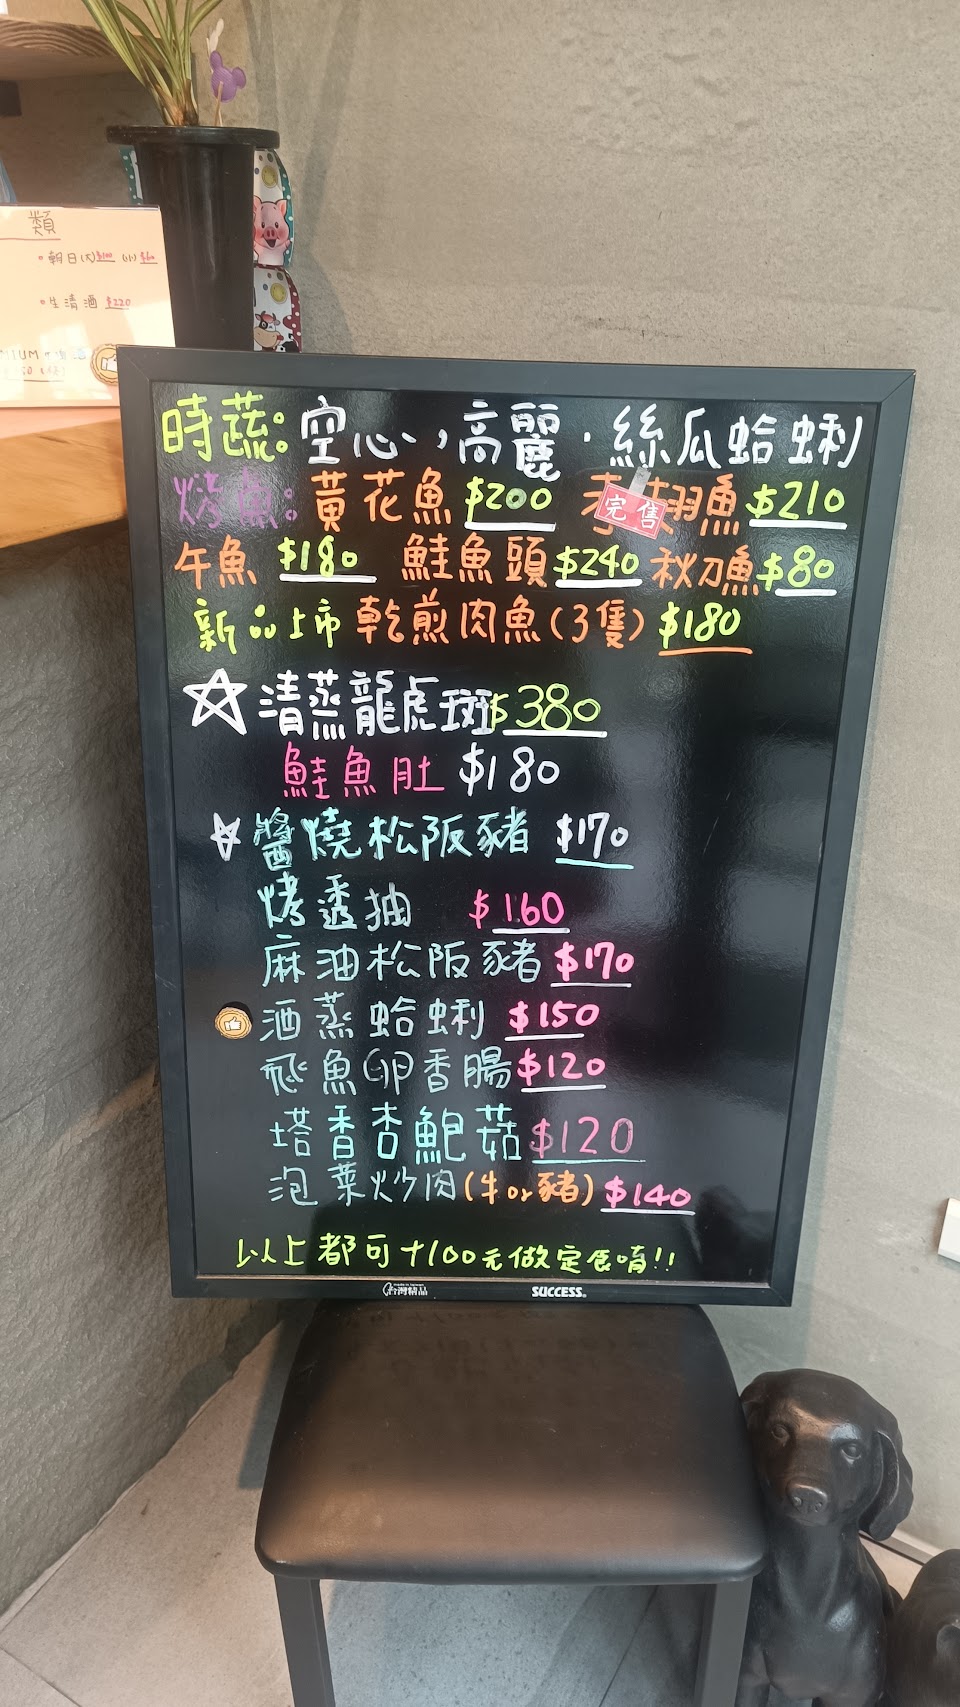 類
•朝日(大)$100 (小)$60
•生清酒 $220
時蔬:空心,高麗·絲瓜蛤蜊
烤魚:黃花魚$200 翅魚$210
完售
午魚 $180 鮭魚頭$240 秋刀魚$80
新品上市 乾煎肉魚(3隻) $180
☆清蒸龍虎斑$380
鮭魚肚 $180
☆醬燒松阪豬 $170
烤透抽 $160
麻油松阪豬 $170
酒蒸蛤蜊 $150
飛魚卵香腸 $120
塔香杏鮑菇 $120
泡菜炒肉(牛or豬) $140
以上都可+100元做定食唷!!
made in taiwan
台灣精品
SUCCESS